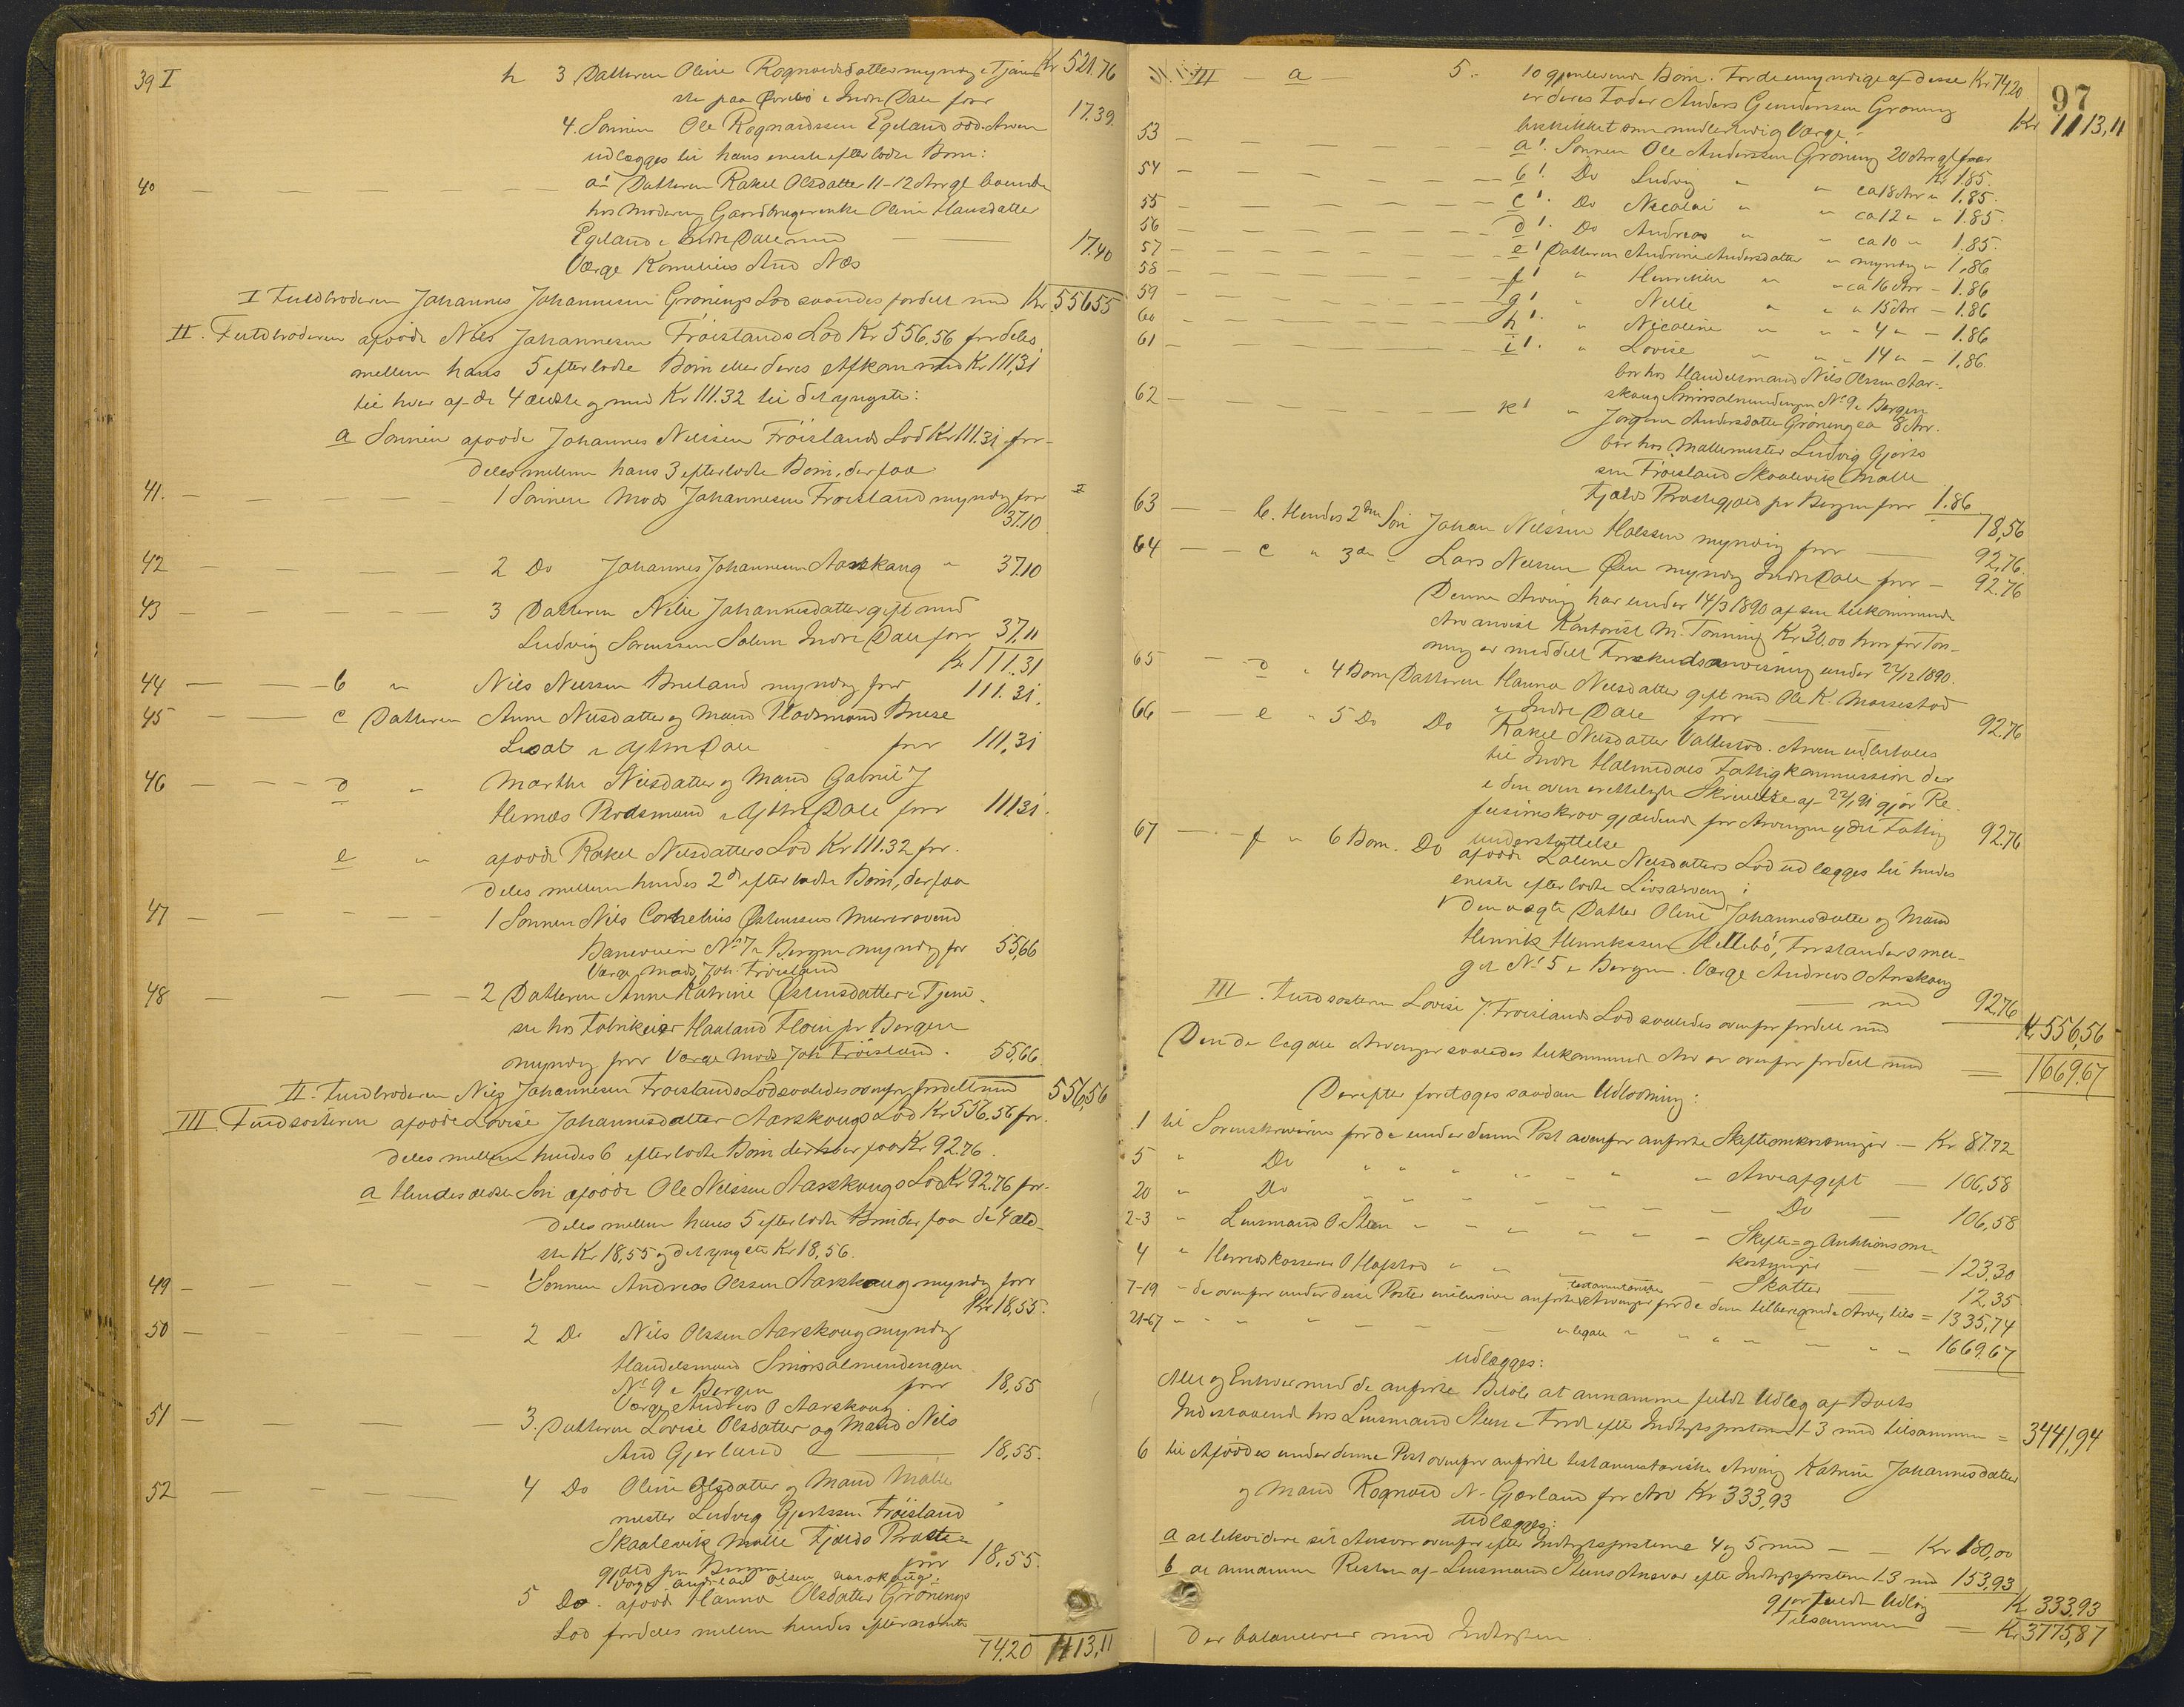 39 I h 3 Datteren Oline Rognaldsdatter myndig i Tjene- Kr 521.76
ste paa Øvrebö i Indre Dale faar 17.39.
4. Sönnen Ole Rognaldssen Egeland död. Arven
udlægges til hans eneste efterladte Barn:
40 — — — — — a¹ Datteren Rakel Olsdatter 11-12 Aar gl. boende
hos Moderen Gaardbrugerenke Oline Hansdatter
Egeland i Indre Dale med — 17.40
Værge Kornelius And Næs
I Fuldbroderen Johannes Johannesen Grönings Lod saaledes fordelt med Kr. 556 55
II. Fuldbroderen afdöde Nils Johannesen Fröislands Lod Kr 556.56 fordeles
mellem hans 5 efterladte Börn eller deres Afkom med Kr 111,31
til hver af de 4 ældste og med Kr 111.32 til det yngste:
a Sönnen afdöde Johannes Nilssen Fröislands Lod Kr 111.31 for-
deles mellem hans 3 efterladte Börn, der faa
41. — — — — — 1 Sönnen Mads Johannesen Fröisland myndig faar
37.10
42 — — — — — 2 Do Johannes Johannesen Aarskaug " 37.10
43 — — — — — 3 Datteren Nille Johannesdatter gift med
Ludvig Sörenssen Solem Indre Dale faar 37,11
Kr 111.31
44 — — — b " Nils Nilssen Breland myndig faar 111.31.
45 — — — c Datteren Anne Nilsdatter og Mand Pladsmand
i Ytre Dale faar 111,31
46 — — — d " Marthe Nilsdatter og Mand Gabriel J
Hernæs Pladsmand i Ytre Dale faar 111.31.
e " afdöde Rakel Nilsdatters Lod Kr 111.32 for-
deles mellem hendes 2de efterladte Börn, der faa
47 — — — — — 1 Sönnen Nils Cornelius Östenssen Murersvend
No 7 i Bergen myndig for 55,66
Værge Mads Joh. Fröisland
48 — — — — — 2 Datteren Anne Katrine Östensdatter i Tjene-
ste hos Fabrikeier Haaland Floien pr Bergen
myndig faar Værge Mads Joh Fröisland. 55,66.
II. Fuldbroderen Nils Johannesen Fröislands Lod saaledes ovenfor fordelt med 556,56
III. Fuldsösteren afdöde Lovise Johannesdatter Aarskougs Lod Kr 556.56 for-
deles mellem hendes 6 efterladte Börn der hver faar Kr 92.76.
a Hendes ældste Sön afdöde Ole Nilssen Aarskougs Lod Kr 92.76 for-
deles mellem hans 5 efterladte Börn der faar de 4 æld-
ste Kr 18,55 og det yngste Kr 18,56.
49 — — — — — 1 Sönnen Andreas Olssen Aarskoug myndig faar
Kr 18,55.
50 — — — — — 2 Do Nils Olssen Aarskoug myndig
Handelsmand Smörsalmendingen
No 9 i Bergen faar 18,55
Værge Andreas O Aarskoug
51 — — — — — 3. Datteren Lovise Olsdatter og Mand Nils
And Gjerland — 18,55.
52 — — — — — 4 Do Oline Olsdatter og Mand Mølle
mester Ludvig Gjertssen Fröisland
Skaalevik Mølle Fjelds Præste-
gjæld pr Bergen faar 18,55.
Værge Andreas Olsen Aarskoug.
5 Do. afdöde Hanna Olsdatter Grönings
Lod fordeles mellem hendes efternævnte
74.20 1113,11
97
III — a — 5. 10 gjenlevende Börn. For de umyndige af disse Kr 74,20
er deres Fader Anders Gundersen Gröning Kr 1113,11
beskikket som midlertidig Værge:
53 — — — — — a¹. Sönnen Ole Anderssen Gröning 20 Aar gl faar
Kr 1.85.
54 — — — — — b¹. Do Ludvig " " ca 18 Aar " 1.85.
55 — — — — — c¹. Do Nicolai " " ca 12 " " 1.85.
56 — — — — — d¹. Do Andreas " " ca 10 " 1.85.
57 — — — — — e¹ Datteren Andrine Andersdatter " myndig " 1,86
58 — — — — — f¹ " Henrikke " " ca 16 Aar – 1.86
59 — — — — — g¹ " Nille " " 15 Aar – 1.86
60 — — — — — h¹. " Nicoline " " 4 " – 1.86
61 — — — — — i¹. " Lovise " " 14 " – 1.86.
bor hos Handelsmand Nils Olssen Aar-
skoug Smörsalmendingen No 9 i Bergen
62 — — — — — k¹ " Jörgine Andersdatter Gröning ca 8 Aar.
bor hos Møllemester Ludvig Gjerts
sen Fröisland Skaalevik Mølle
Fjelds Præstegjæld pr Bergen faar 1.86
18,56
63 — — b. Hendes 2den Sön Johan Nilssen Halssen myndig faar — 92,76.
64 — — c " 3die " Lars Nilssen Øen myndig Indre Dale faar – 92.76
Denne Arving har under 14/3 1890 af sin tilkommende
Arv anvist Kontorist M. Tonning Kr 30.00 hvorfor Ton-
ning er meddelt Forskudsanvisning under 22/12 1890.
65 — d " 4 Barn Datteren Hanna Nilsdatter gift med Ole K. Massestad
i Indre Dale faar — 92.76
66 — — e " 5 Do Do Rakel Nilsdatter Valkestad. Arven udbetales
til Indre Holmedals Fattigkommission der
i den oven Skrivelse af 22/1 91 gjör Re-
fusionskrav gjældende for Arvingen ydet Fattig
understøttelse 92.76
67 — — f " 6 Barn. Do afdöde Nilsdatters Lod udlægges til hendes
eneste efterladte Livsarving:
1 den ægte Datter Oline Johannesdatter og Mand
Henrik Henrikssen Hellebö, Forstandersmu-
get No 5 i Bergen. Værge Andreas O Aarskoug
— med 92.76
III. Fuldsösteren Lovise J. Fröislands Lod saaledes ovenfor fordelt med Kr 556,56
Den de legale Arvinger saaledes tilkommende Arv er ovenfor fordelt med = 1669.67
Derefter foretages saadan Udlodning:
1 til Sorenskriveren for de under denne Post ovenfor anförte Skifteomkostninger — Kr 87.72
5 " Do " " " " " " Arveafgift — 106,58
20 " Do " " " " " " Do — 106,58
2-3 " Lensmand O Steen " " " " " Skifte- og Auktionsom-
kostninger — 123,30
4 " Herredskasserer O Hafstad " " " Skatter — 12,35
7-19 " de ovenfor under disse Poster inclusive anförte testamentariske Arvinger for de dem tilberegnede Arver, tils = 1335,74
21-67 " " " " " " legale " " " " " 1669.67
udlægges:
Alle og Enhver med de anförte Belöb at annamme fuldt Udlæg af Boets
Indestaaende hos Lensmand Steen i Förde efter Indtægtsposterne 1-3 med tilsammen = 3441,94
6 til Afdöde under denne Post ovenfor anförte testamentariske Arving Katrine Johannesdatter
og Mand Rognald N. Gjerland for Arv Kr 333,93
udlægges:
a at likvidere sit Ansvar ovenfor efter Indtægtsposterne 4 og 5 med — — Kr 180,00
b at annamme Resten af Lensmand Steens Ansvar efter Indtægtsposterne 1-3 med 153,93
gjör fuldt Udlæg Kr 333,93
Tilsammen — Kr 3775,87
Der balancerer med Indtægten.